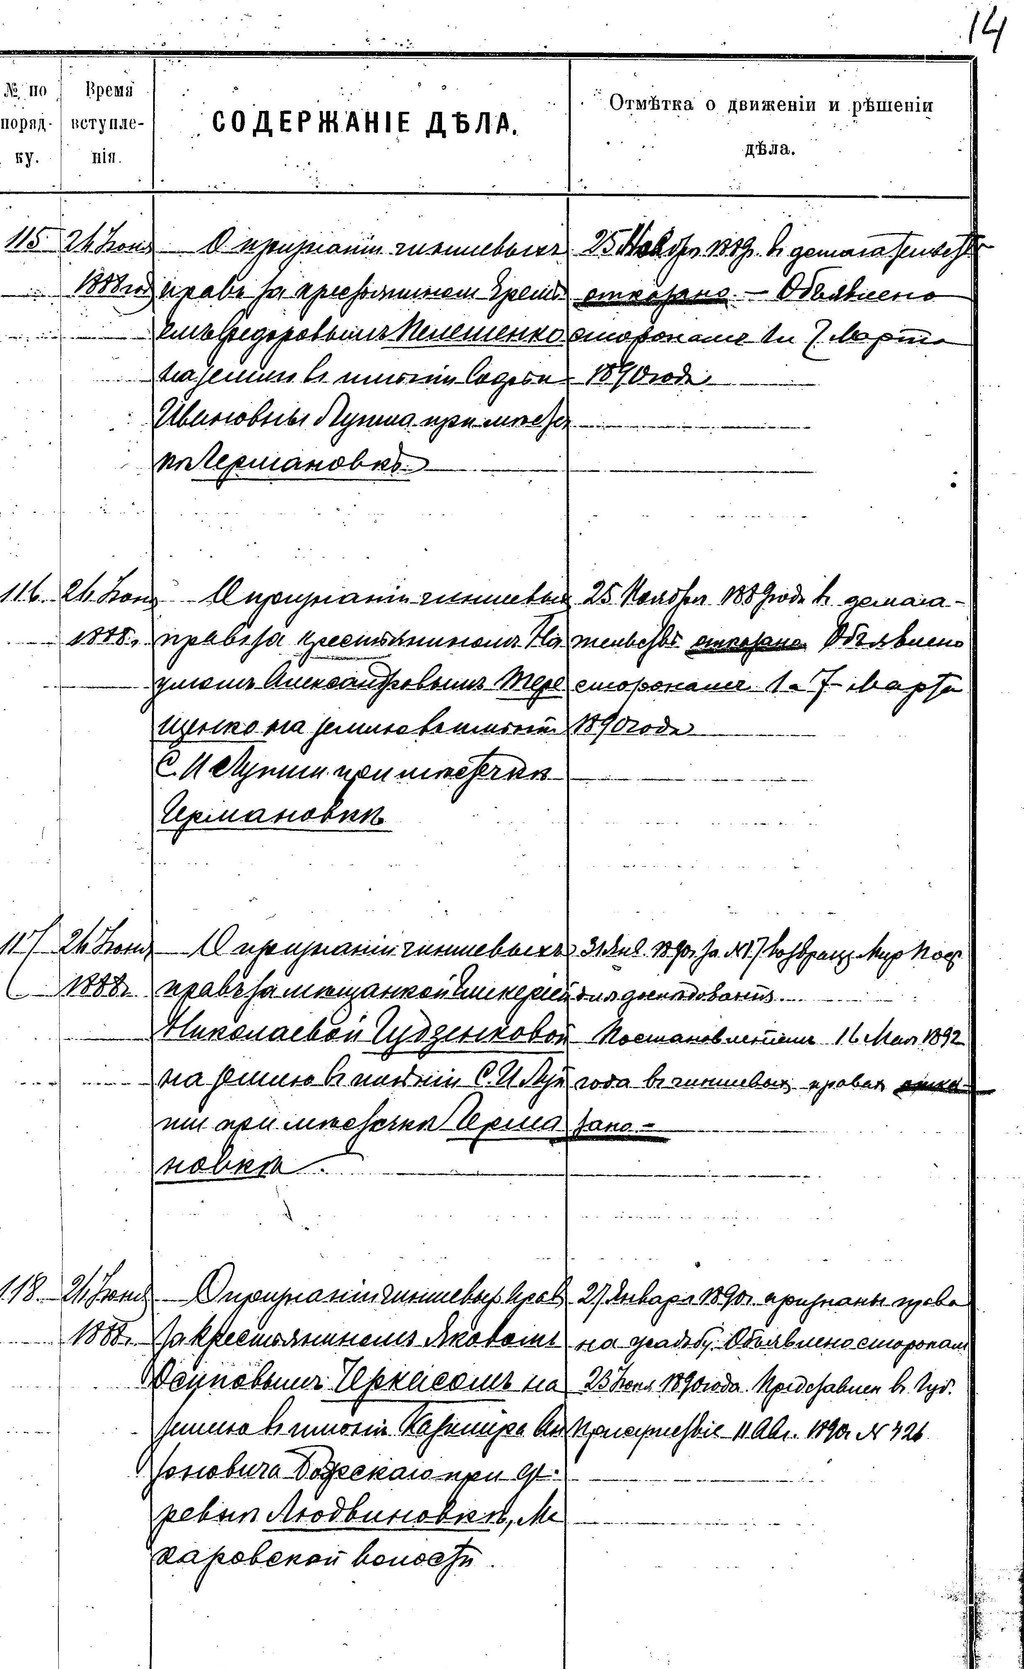 14
№ по поряд-ку.
Время вступле-нія.
СОДЕРЖАНІЕ ДѢЛА.
Отмѣтка о движеніи и рѣшеніи
дѣла.
115 24 Іюня
1888 го
О признаніи чиншевыхъ
правъ за крестьяниномъ Ереме
емъ Федоровымъ Пелешенко
на землю въ имѣніи Софьи
Ивановны Лупша при мѣстеч
кѣ Германовкѣ.
25 Ноября 1889 г. въ домагательствѣ
отказано. — Объявлено
сторонамъ 1 и 7 Марта
1890 года.
116. 24 Іюня
1888 г.
О признаніи чиншевыхъ
правъ за крестьяниномъ На
умомъ Александровымъ Тере
щенко на землю въ имѣніи
С. И Лупши при мѣстечкѣ
Германовкѣ
25 Ноября 1889 года въ домага-
тельствѣ отказано. Объявлено
сторонамъ 1 и 7 Марта
1890 года
117 24 Іюня
1888 г.
О признаніи чиншевыхъ
правъ за мѣщанкой Гликеріей
Николаевой Гудзенковой
на землю въ имѣніи С. И Луп
ши при мѣстечкѣ Герма
новкѣ.
31 Янв. 1890 г. за № 17 возвращ. Мир Поср
для дослѣдованія
Постановленіемъ 16 Мая 1892
года въ чиншевыхъ правахъ отка-
зано. —
118. 24 Іюня
1888 г.
О признаніи чиншевыхъ правъ
за крестьяниномъ Яковомъ
Осиповымъ Черкасомъ на
землю въ имѣніи Казиміра Ан
тоновича при де
ревнѣ Людвиновкѣ, Ма
каровской волости.
27 Января 1890 г. признаны права
на усадьбу. Объявлено сторонамъ
23 Іюня 1890 года. Представлен въ Губ.
Присутствіе 11 Авг. 1890 г. № 326